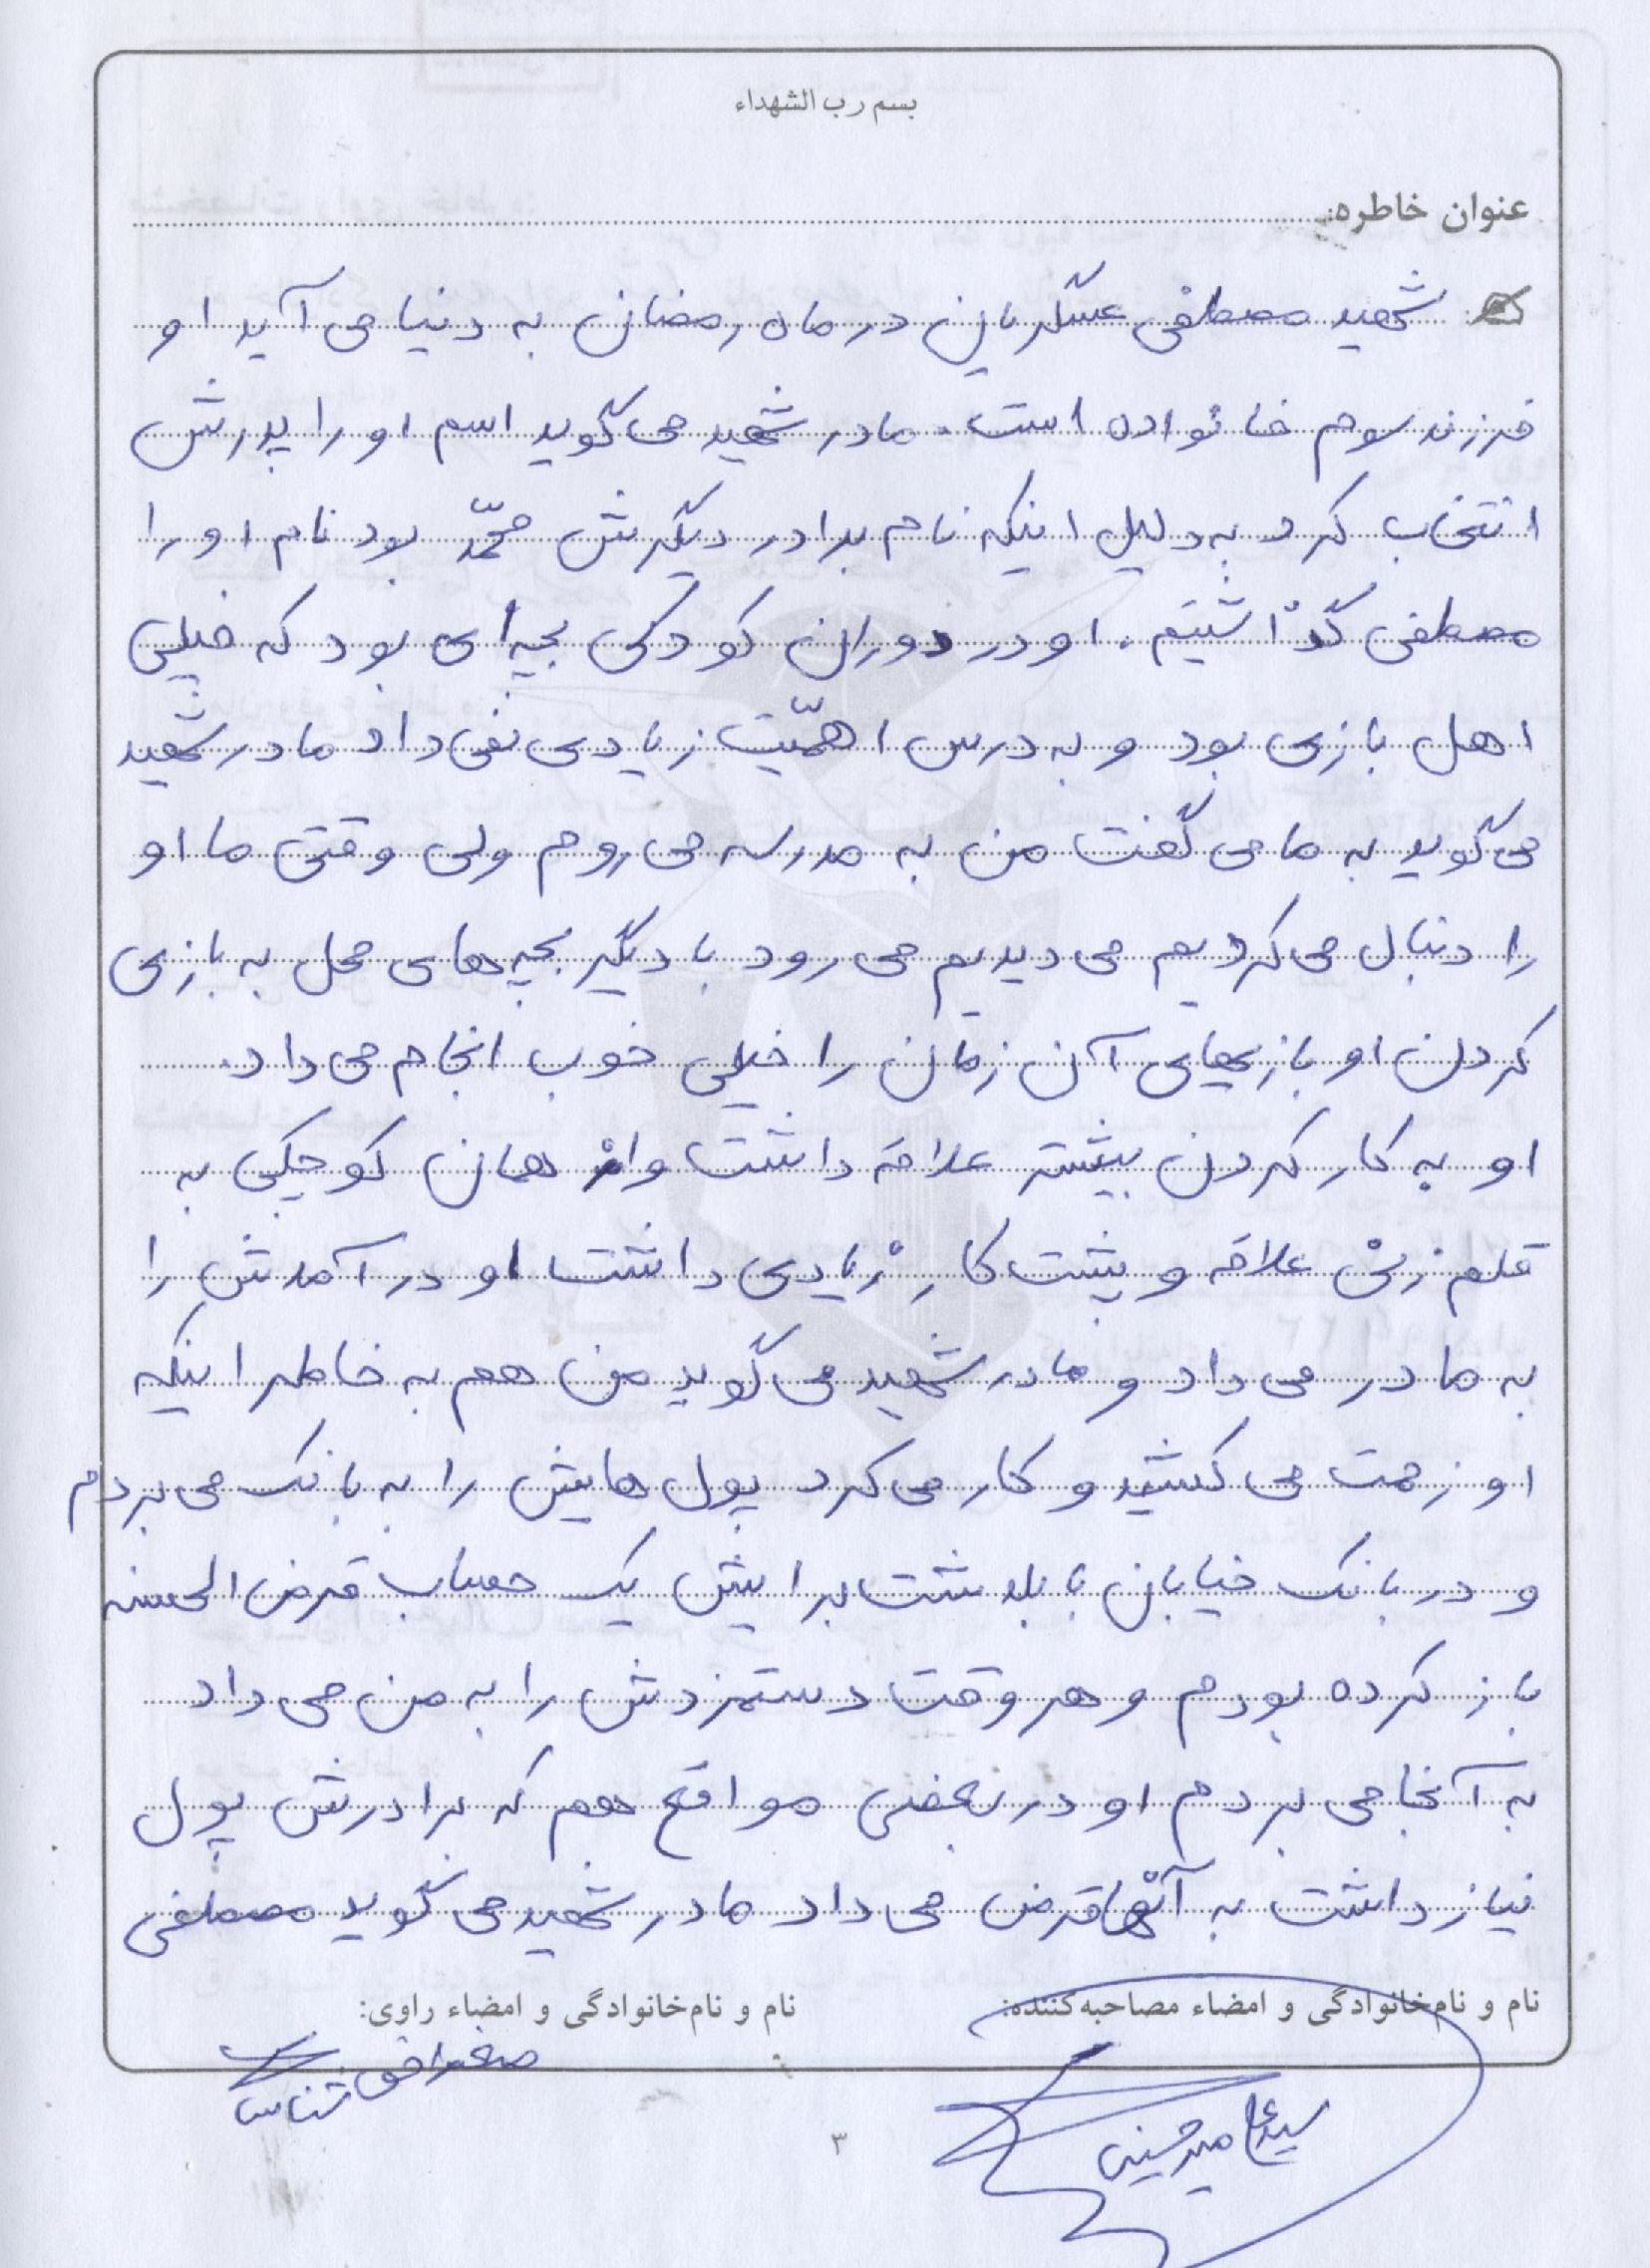 بسم رب الشهداء
عنوان خاطره:
شهید مصطفی عسگریان در ماه رمضان به دنیا می آید او
فرزند سوم خانواده است. مادر شهید می گوید اسم او را پدرش
انتخاب کرد به دلیل اینکه نام برادر دیگرش محمّد بود نام او را
مصطفی گذاشتیم. او در دوران کودکی بچه ای بود که خیلی
اهل بازی بود و به درس اهمّیت زیادی نمی داد مادر شهید
می گوید به ما می گفت من به مدرسه می روم ولی وقتی ما او
را دنبال می کردیم می دیدیم می رود با دیگر بچه های محل به بازی
کردن او بازیهای آن زمان را خیلی خوب انجام می داد.
او به کار کردن بیشتر علاقه داشت واز همان کوچکی به
قلم زنی علاقه و پشت کار زیادی داشت او در آمدش را
به مادر می داد و مادر شهید می گوید من هم به خاطر اینکه
او زحمت می کشید و کار می کرد پول هایش را به بانک می بردم
و در بانک خیابان بابلدشت برایش یک حساب قرض الحسنه
باز کرده بودم و هر وقت دستمزدش را به من می داد
به آنجا می بردم او در بعضی مواقع هم که برادرش پول
نیاز داشت به آنها قرض می داد مادر شهید می گوید مصطفی
نام و نام‌خانوادگی و امضاء مصاحبه‌کننده:
نام و نام‌خانوادگی و امضاء راوی:
۳